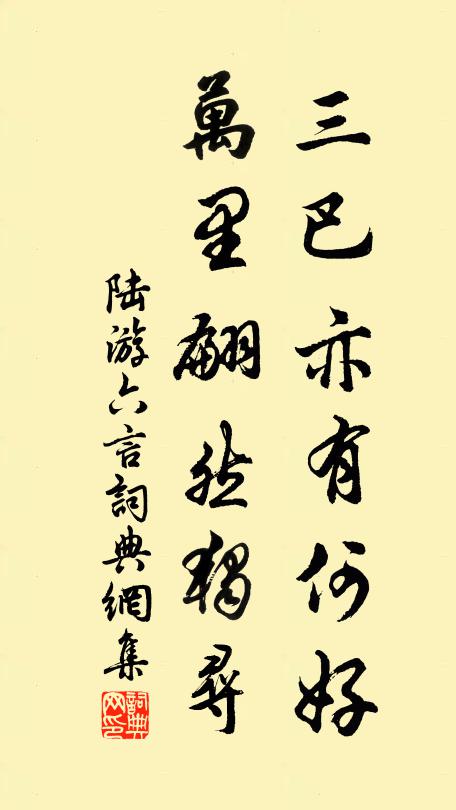 三巴亦有何好
萬里翩然獨尋
陆游六言詞典網集
詞典网印